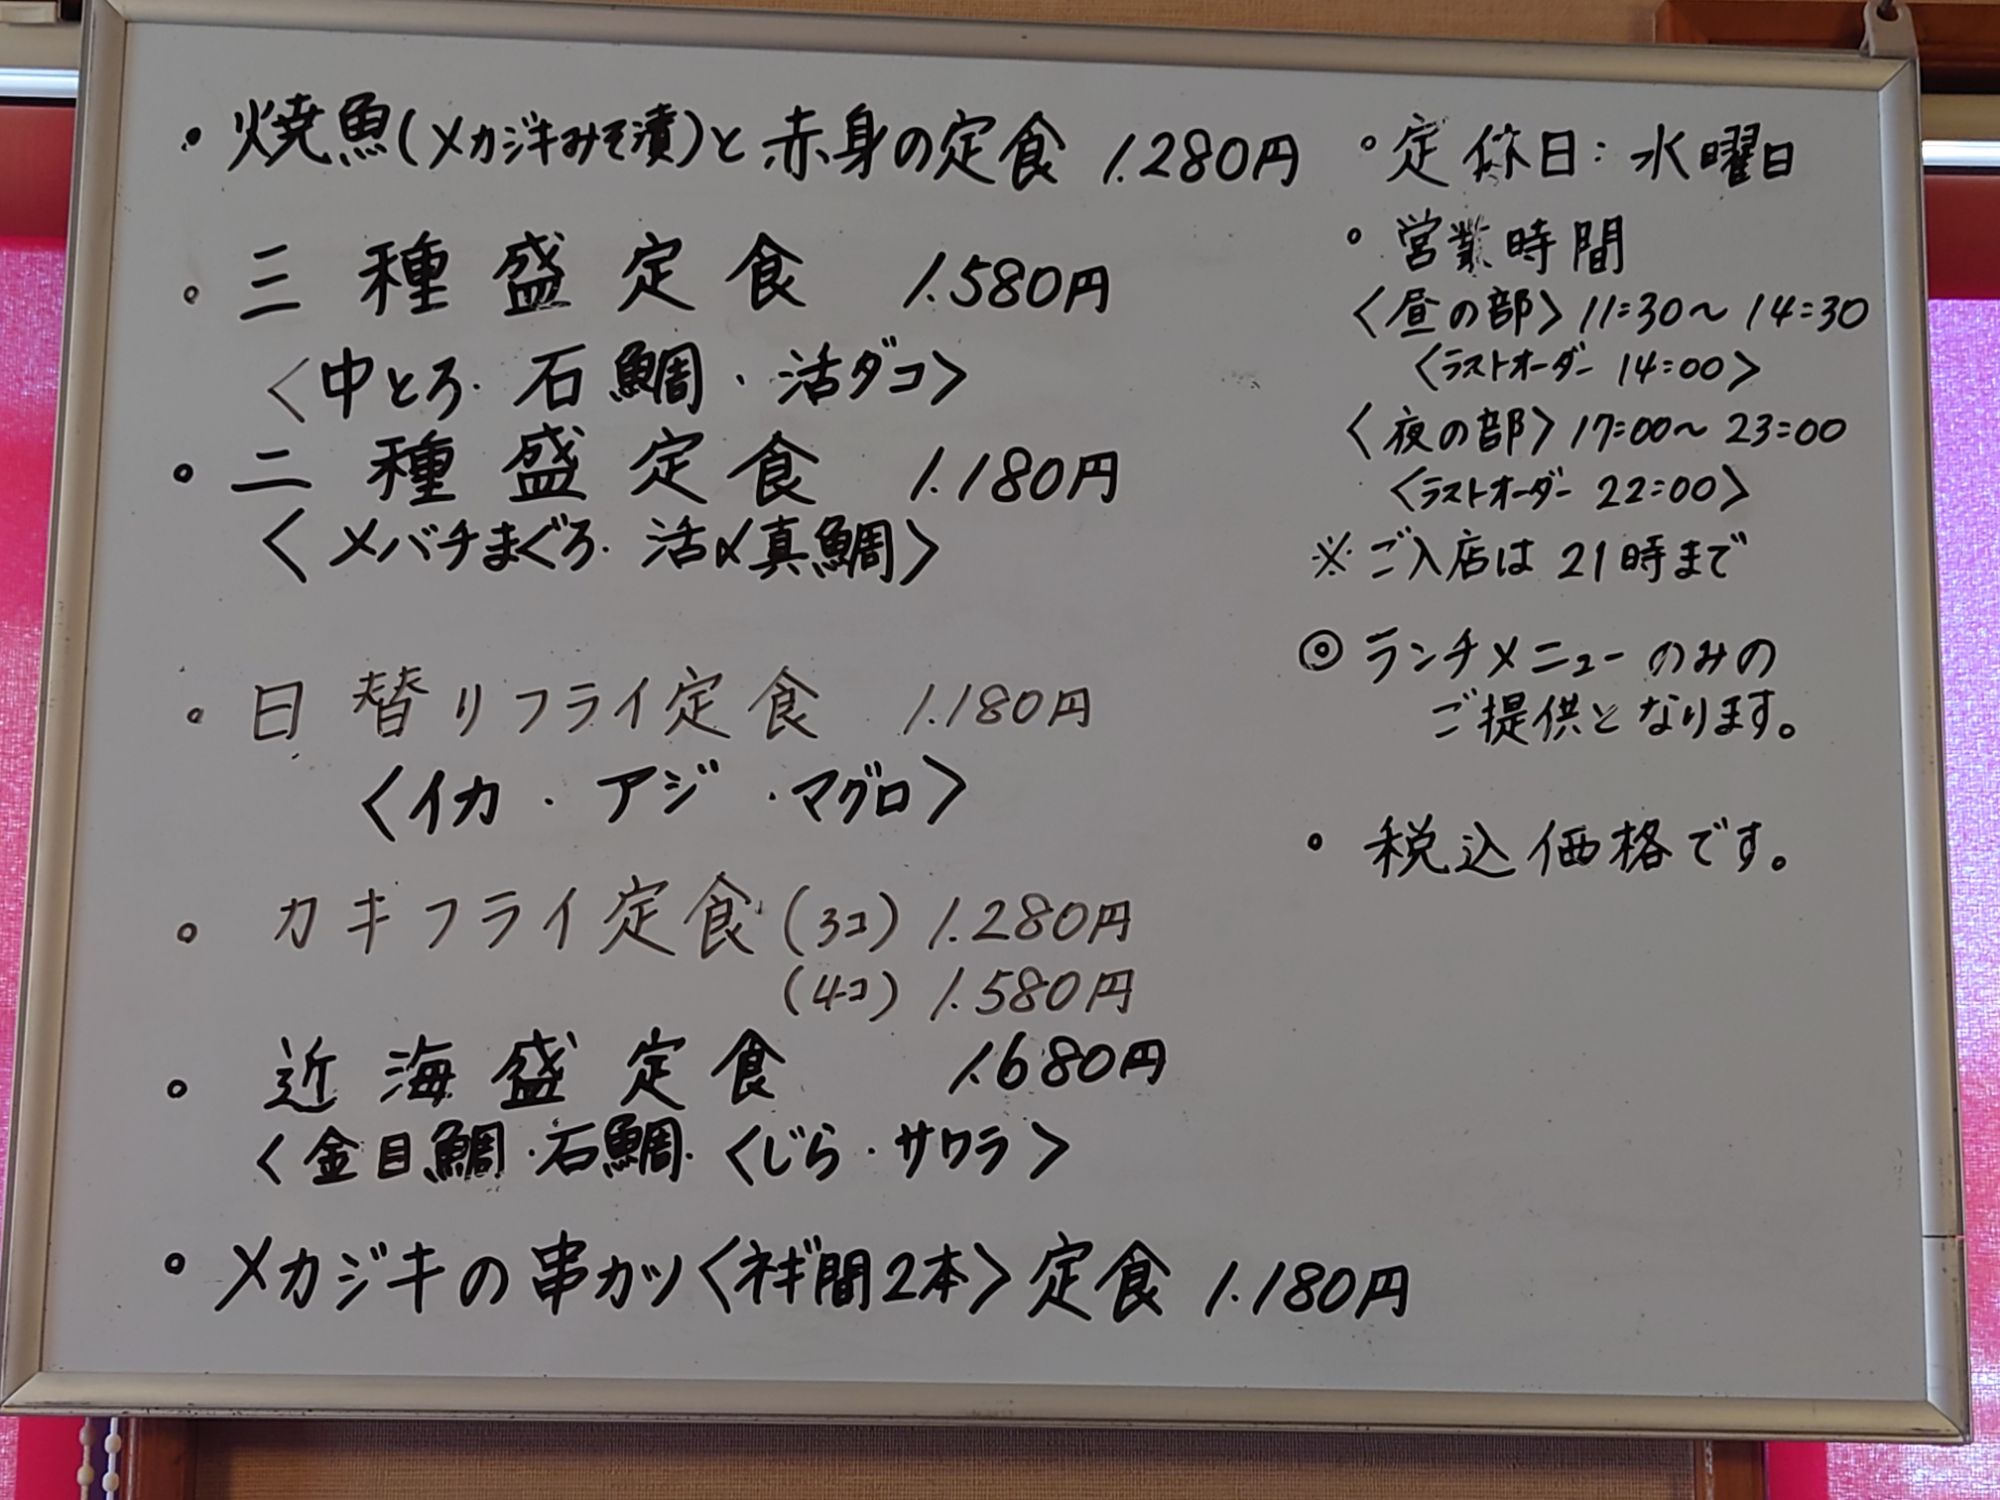 ・焼魚(メカジキみそ漬)と赤身の定食 1.280円
・三種盛定食 1.580円
〈中とろ・石鯛・活ダコ〉
・二種盛定食 1.180円
〈メバチまぐろ・活〆真鯛〉
・日替りフライ定食 1.180円
〈イカ・アジ・マグロ〉
・カキフライ定食(3コ) 1.280円
(4コ) 1.580円
・近海盛定食 1.680円
〈金目鯛・石鯛・くじら・サワラ〉
・メカジキの串カツ〈ネギ間2本〉定食 1.180円
・定休日:水曜日
・営業時間
〈昼の部〉11:30～14:30
〈ラストオーダー 14:00〉
〈夜の部〉17:00～23:00
〈ラストオーダー 22:00〉
※ご入店は21時まで
◎ランチメニューのみの
ご提供となります。
・税込価格です。